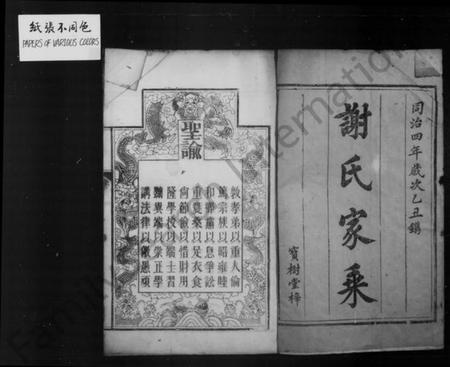 紙張不同色
PAPERS OF VARIOUS COLORS
同治四年歲次乙丑鐫
謝氏家乘
寶樹堂梓
聖諭
敦孝弟以重人倫
篤宗族以昭雍睦
和鄉黨以息爭訟
重農桑以足衣食
尚節儉以惜財用
隆學校以端士習
黜異端以崇正學
講法律以儆愚頑